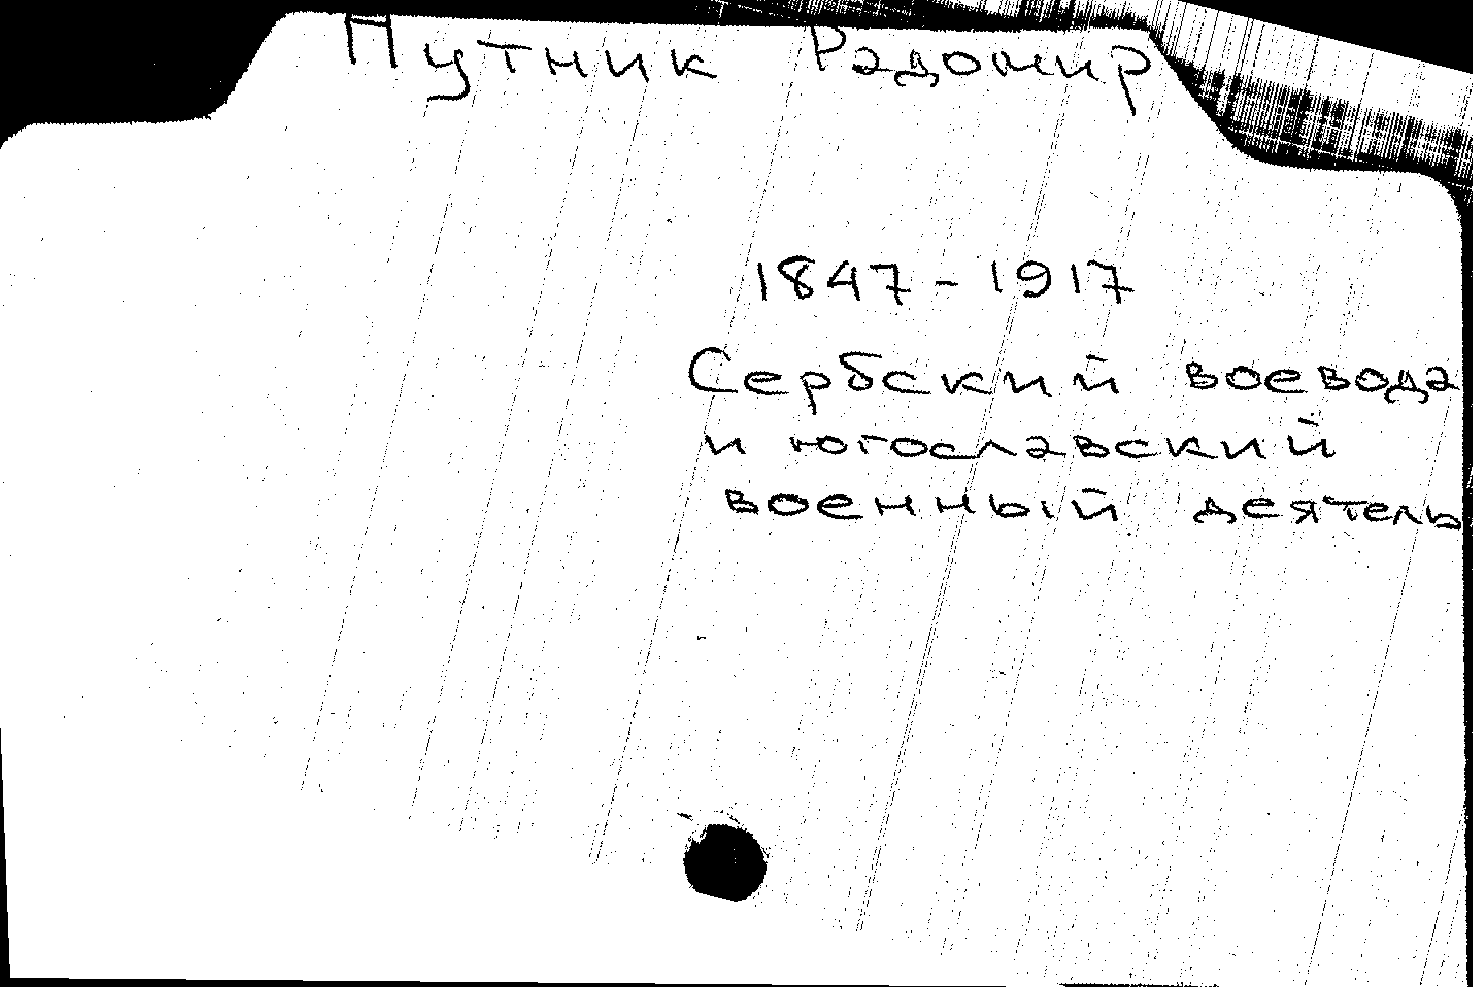 Путник Радомир
1847-1917
Сербский воевода
и югославский
военный деятель